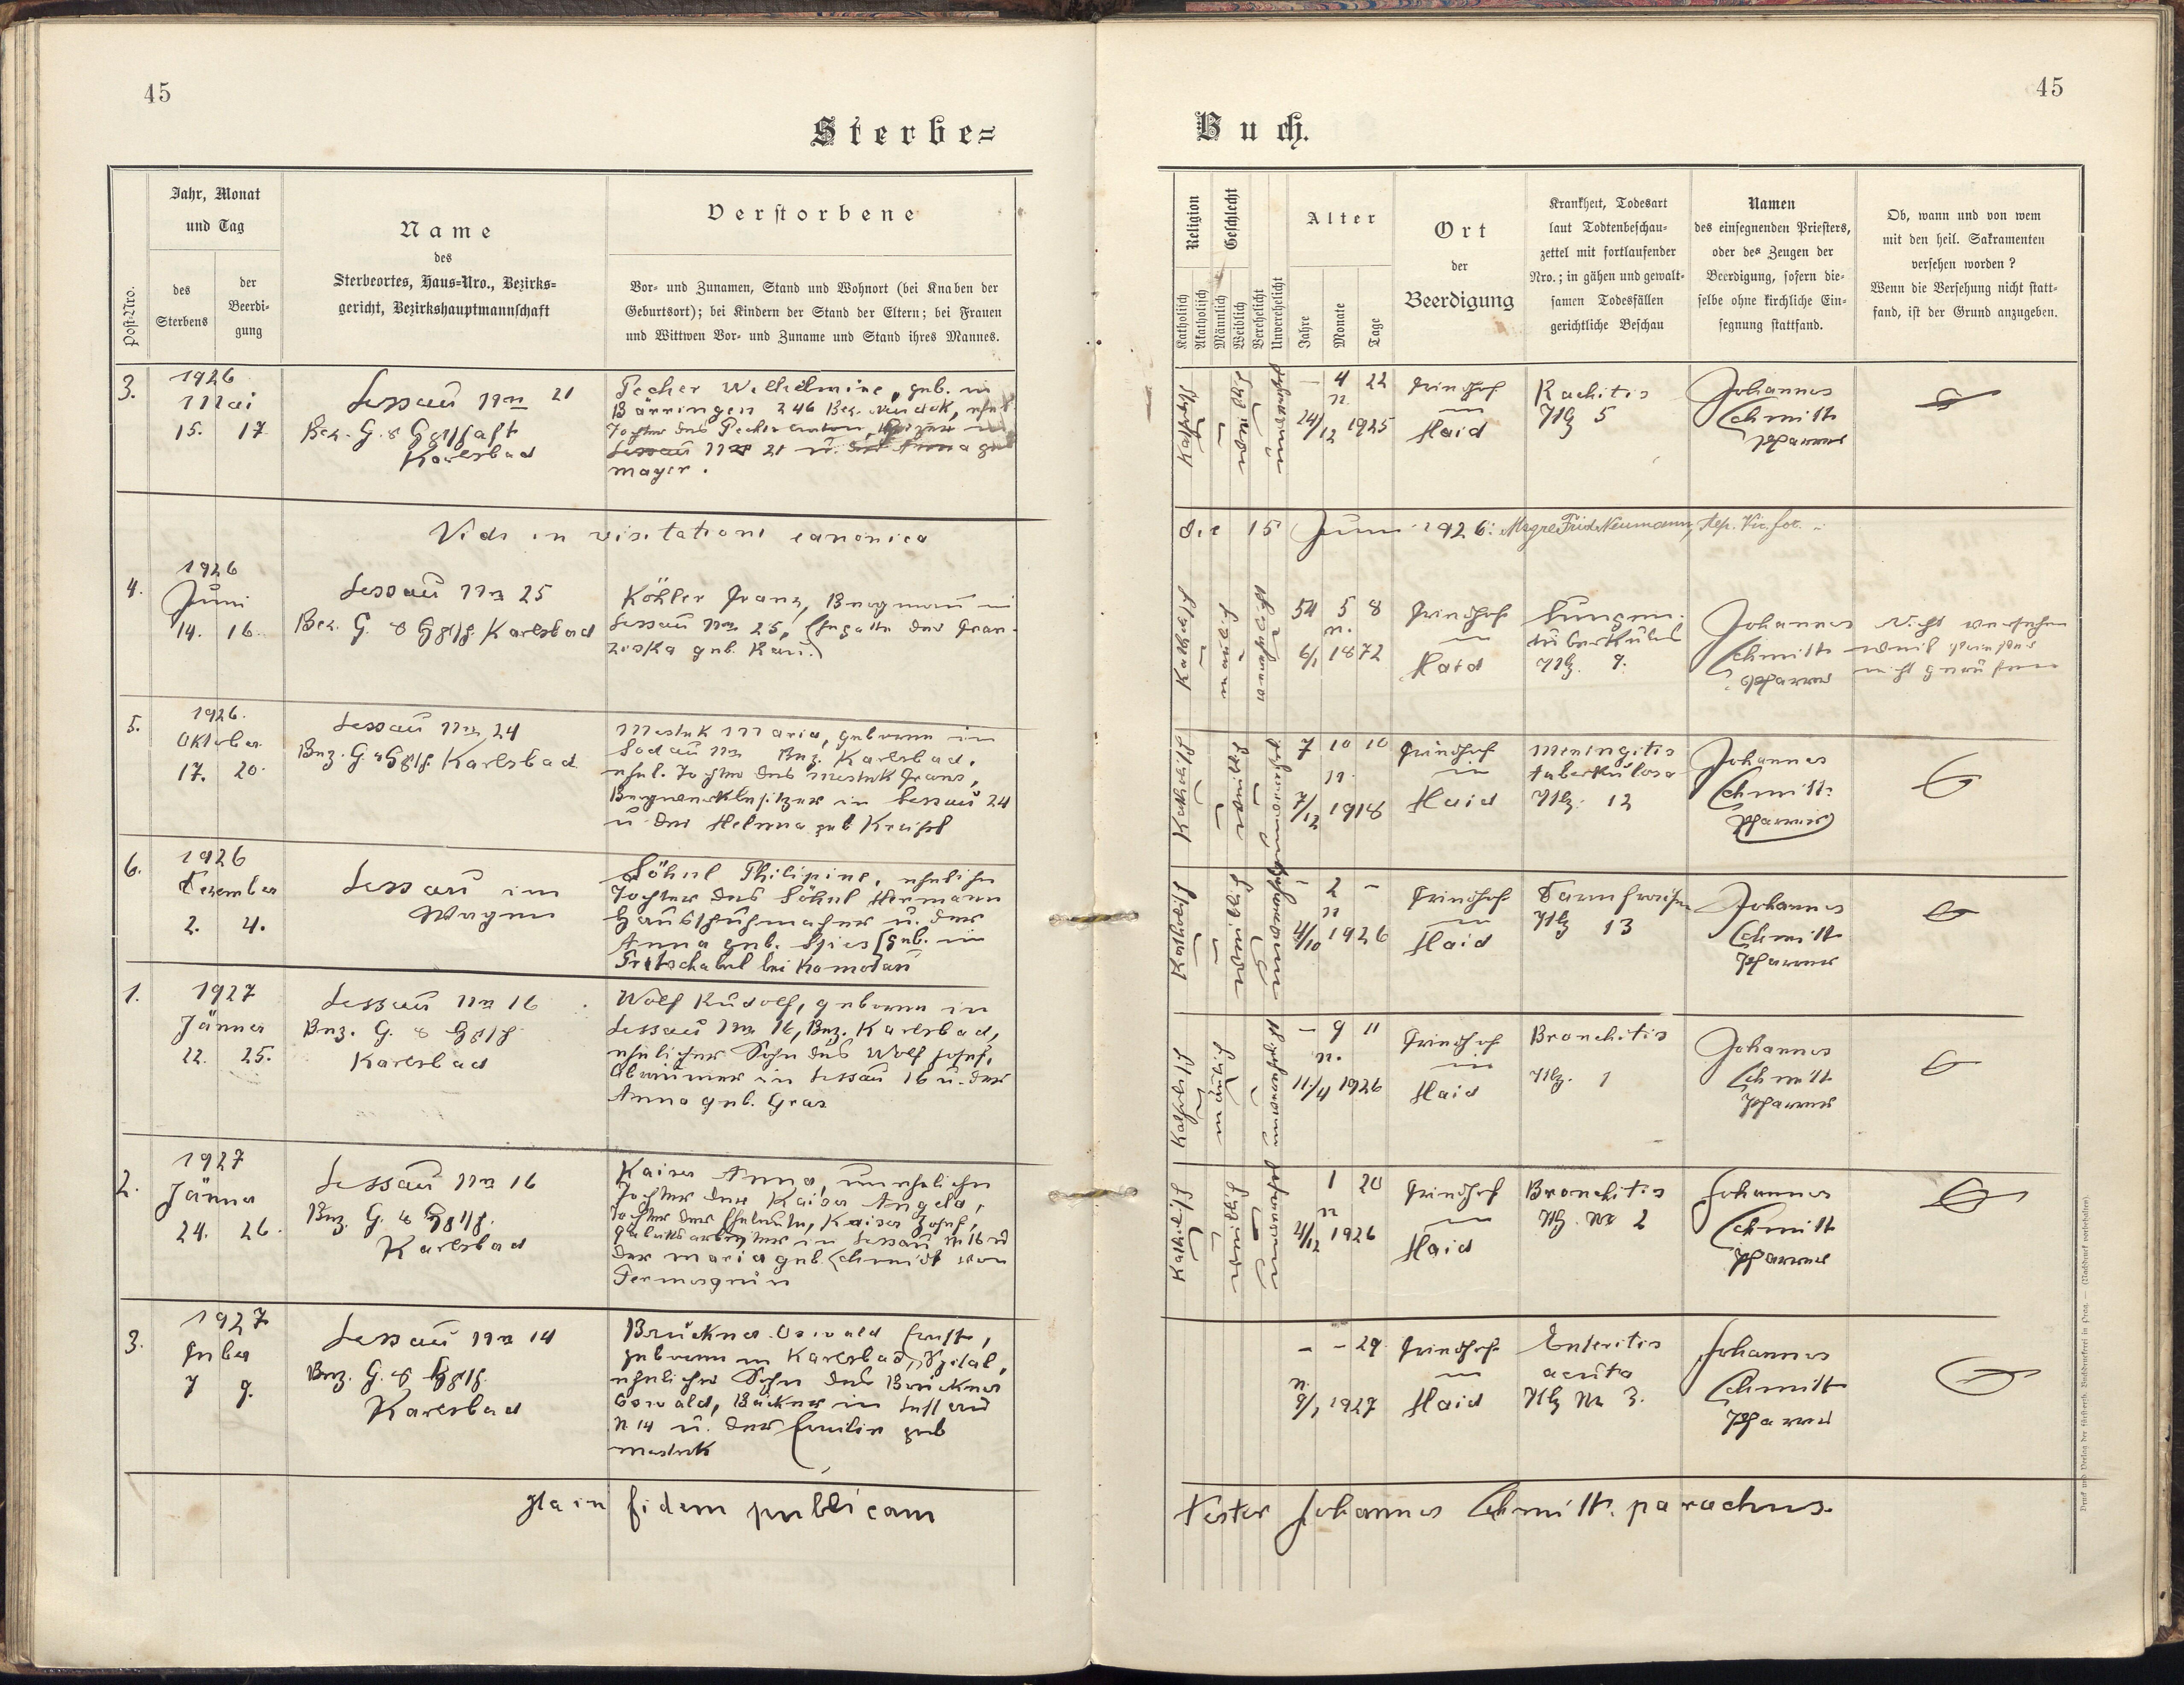 45
Sterbe=
Post-Nro.
Jahr, Monat
und Tag
des
Sterbens
der
Beerdi-
gung
Name
des
Sterbeortes, Haus-Nro., Bezirks-
gericht, Bezirkshauptmannschaft
Verstorbene
Vor- und Zunamen, Stand und Wohnort (bei Knaben der
Geburtsort); bei Kindern der Stand der Eltern; bei Frauen
und Wittwen Vor- und Zuname und Stand ihres Mannes.
3.
1926
Mai
15. 17.
Lessau Nro 21
Bez. G. & Hptschaft
Karlsbad
Pecher Wilhelmine, geb. in
Bärringen 246 Bez. Neudek, ehel.
Tochter des Pecher Anton, Heizer in
Lessau Nro 21 u. der Anna geb
Mayer.
Vidi in visitatione canonica
4.
1926
Juni
14. 16.
Lessau Nro 25
Bez. G. & Hptsch. Karlsbad
Köhler Franz, Bergmann in
Lessau Nro 25, (Ehegatte der Fran-
ziska geb. Kau.)
5.
1926.
Oktober
17. 20.
Lessau Nro 24
Bez. G. & Hptsch. Karlsbad
Mestek Maria, geboren in
Sodau Nro Bez. Karlsbad.
ehel. Tochter des Mestek Franz,
Bergwerkbesitzer in Lessau 24
u. der Helena geb Kreisl
6.
1926
Dezember
2. 4.
Lessau im
Wagen
Söhnl Philipine, eheliche
Tochter des Söhnl Hermann
Hausschuhmacher u. der
Anna geb. Spies [geb. in
Tritschabel bei Komotau
1.
1927
Jänner
22. 25.
Lessau Nro 16
Bez. G. & Hptsch
Karlsbad
Wolf Rudolf, geboren in
Lessau Nro 16, Bez. Karlsbad,
ehelicher Sohn des Wolf Josef,
in Lessau 16 u. der
Anna geb. Gras
2.
1927
Jänner
24. 26.
Lessau Nro 16
Bez. G. & Hptsch.
Karlsbad
Kaiser Anna, uneheliche
Tochter der Kaiser Angela,
Tochter der Eheleute, Kaiser Josef,
Fabriksarbeiter in Lessau N 16 u
der Maria geb. Schmidt von
Permesgrün
3.
1927
Feber
7 9.
Lessau Nro 14
Bez. G. & Hptsch.
Karlsbad
Brückner Oswald Ernst,
geboren in Karlsbad, Spital,
ehelicher Sohn des Brückner
Oswald, Bäcker in Lessau
N 14 u. der Emilie geb
Mestek
Ita in fidem publicam
45
Buch.
Religion
Katholisch
Akatholisch
Geschlecht
Männlich
Weiblich
Verehelicht
Unverehelicht
Alter
Jahre
Monate
Tage
Ort
der
Beerdigung
Krankheit, Todesart
laut Todtenbeschau-
zettel mit fortlaufender
Nro.; in gähen und gewalt-
samen Todesfällen
gerichtliche Beschau
Namen
des einsegnenden Priesters,
oder des Zeugen der
Beerdigung, sofern die-
selbe ohne kirchliche Ein-
segnung stattfand.
Ob, wann und von wem
mit den heil. Sakramenten
versehen worden?
Wenn die Versehung nicht statt-
fand, ist der Grund anzugeben.
Katholisch
weiblich
unverehelicht
- 4 22
n
24/12 1925
Friedhof
in
Haid
Rachitis
Ntz 5
Johannes
Schmitt
Pfarrer
die 15 Juni 1926: Mgre Frid. Neumann, Dep. Vic. for.
Katholisch
männlich
verehelicht
54 5 8
n.
6/1 1872
Friedhof
in
Haid
Lungen-
tuberkulos
Ntz. 9.
Johannes
Schmitt
Pfarrer
Nicht versehen
weil Priester
nicht gerufen
Katholisch
weiblich
unverehelicht
7 10 10
n.
7/12 1918
Friedhof
in
Haid
Meningitis
tuberkulosa
Ntz. 12
Johannes
Schmitt
Pfarrer
Katholisch
weiblich
unverehelicht
- 2 -
n
4/10 1926
Friedhof
in
Haid
Darmfraisen
Ntz 13
Johannes
Schmitt
Pfarrer
Katholisch
männlich
unverehelicht
- 9 11
n.
11./4 1926
Friedhof
in
Haid
Bronchitis
Ntz. 1
Johannes
Schmitt
Pfarrer
Katholisch
weiblich
unverehelicht
1 20
n
4/12 1926
Friedhof
in
Haid
Bronchitis
Ntz. Nr 2
Johannes
Schmitt
Pfarrer
- - 29
n.
8/1 1927
Friedhof
in
Haid
Enteritis
acuta
Ntz Nr 3.
Johannes
Schmitt
Pfarrer
Testor Johannes Schmitt. parochus.
Druck und Verlag der fürsterzb. Buchdruckerei in Prag. — (Nachdruck vorbehalten).